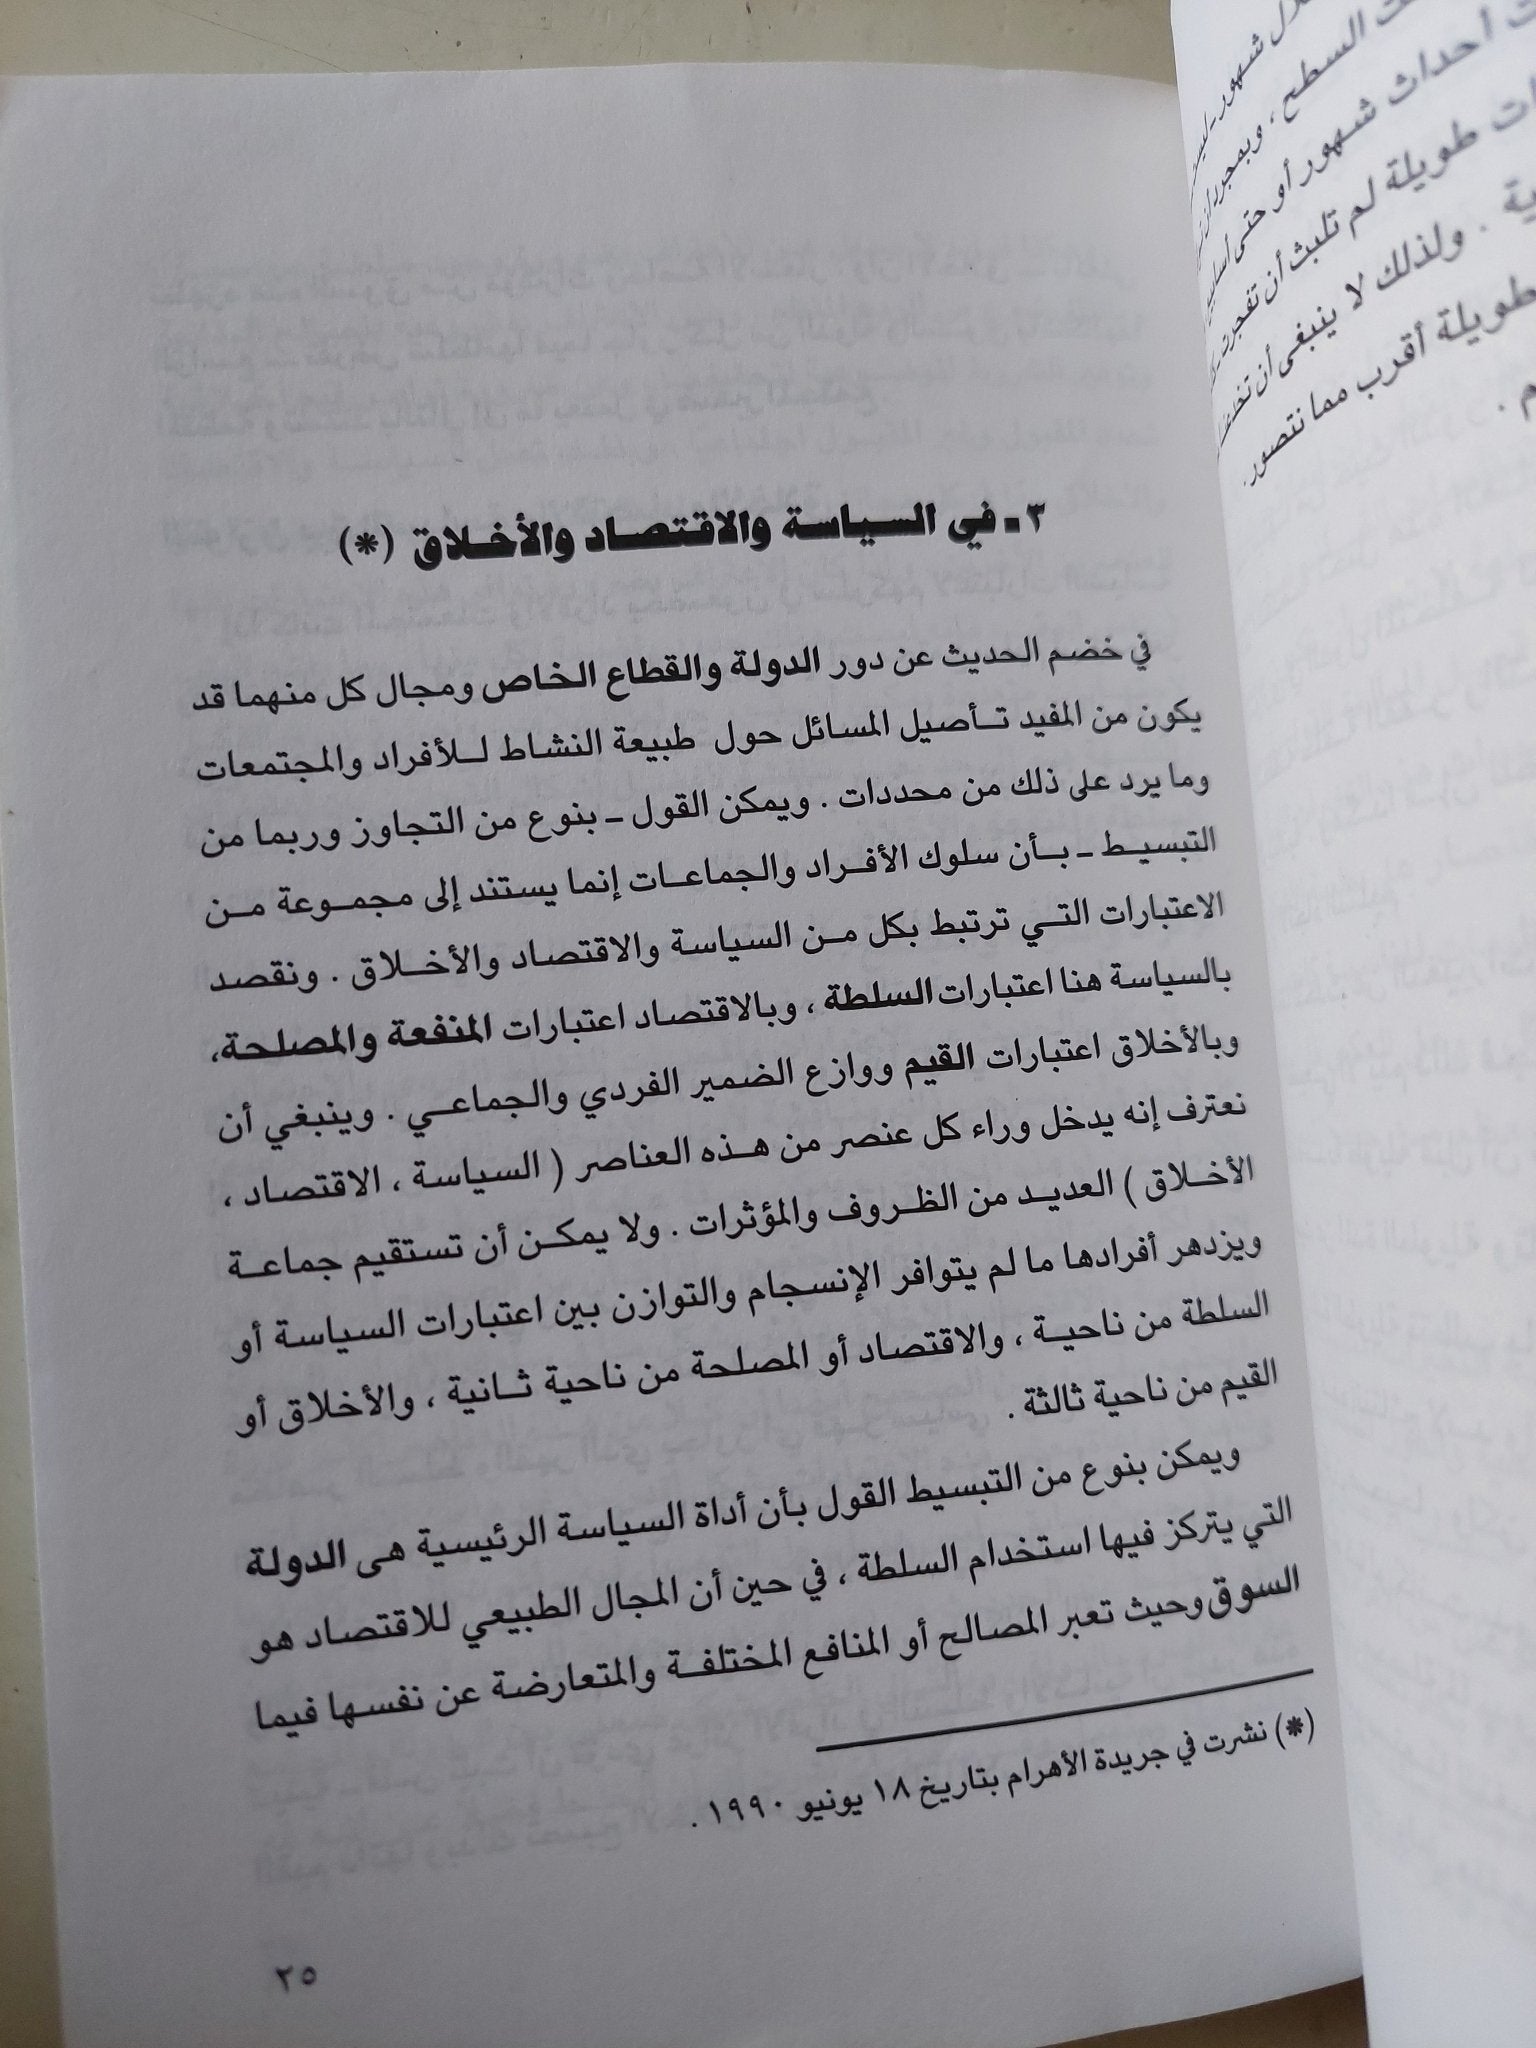 ٣ ـ في السياسة والاقتصاد والأخلاق (*)
في خضم الحديث عن دور الدولة والقطاع الخاص ومجال كل منهما قد
يكون من المفيد تأصيل المسائل حول طبيعة النشاط للأفراد والمجتمعات
وما يرد على ذلك من محددات . ويمكن القول ـ بنوع من التجاوز وربما من
التبسيط ـ بأن سلوك الأفراد والجماعات إنما يستند إلى مجموعة من
الاعتبارات التي ترتبط بكل من السياسة والاقتصاد والأخلاق . ونقصد
بالسياسة هنا اعتبارات السلطة ، وبالاقتصاد اعتبارات المنفعة والمصلحة،
وبالأخلاق اعتبارات القيم ووازع الضمير الفردي والجماعي . وينبغي أن
نعترف إنه يدخل وراء كل عنصر من هذه العناصر ( السياسة ، الاقتصاد ،
الأخلاق ) العديد من الظروف والمؤثرات . ولا يمكن أن تستقيم جماعة
ويزدهر أفرادها ما لم يتوافر الإنسجام والتوازن بين اعتبارات السياسة أو
السلطة من ناحية ، والاقتصاد أو المصلحة من ناحية ثانية ، والأخلاق أو
القيم من ناحية ثالثة .
ويمكن بنوع من التبسيط القول بأن أداة السياسة الرئيسية هى الدولة
التي يتركز فيها استخدام السلطة ، في حين أن المجال الطبيعي للاقتصاد هو
السوق وحيث تعبر المصالح أو المنافع المختلفة والمتعارضة عن نفسها فيما
(*) نشرت في جريدة الأهرام بتاريخ ١٨ يونيو ١٩٩٠ .
٢٥
شهور ـ
السطح ، وبمجرد
أحداث شهور أو حتى
طويلة لم تلبث أن تفجرت
. ولذلك لا ينبغى أن
طويلة أقرب مما نتصور.